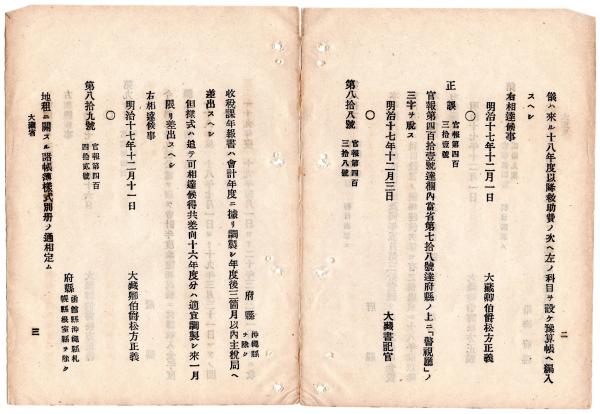 儀ハ來ル十八年度以降救助費ノ次ヘ左ノ科目ヲ設ケ豫算帳ヘ編入
スヘシ
右相達候事
明治十七年十二月一日
大藏卿伯爵松方正義
○
正誤
官報第四百
三拾壹號
官報第四百拾壹號達欄內當省第七拾八號達府縣ノ上ニ「警視廳」ノ
三字ヲ脫ス
明治十七年十二月三日
大藏書記官
○
第八拾八號
官報第四百
三拾八號
二
府縣
沖繩縣
ヲ除ク
收稅課年報書ハ會計年度ニ據リ調製シ年度後三箇月以內主稅局ヘ
差出スヘシ
但樣式ハ追テ可相達候得共差向十六年度分ハ適宜調製シ來一月
限リ差出スヘシ
右相達候事
明治十七年十二月十一日
大藏卿伯爵松方正義
○
第八拾九號
官報第四百
四拾貳號
府縣
函館縣沖繩縣札
幌縣根室縣ヲ除ク
地租ニ關スル諸帳簿樣式別册ノ通相定ム
大藏省
三